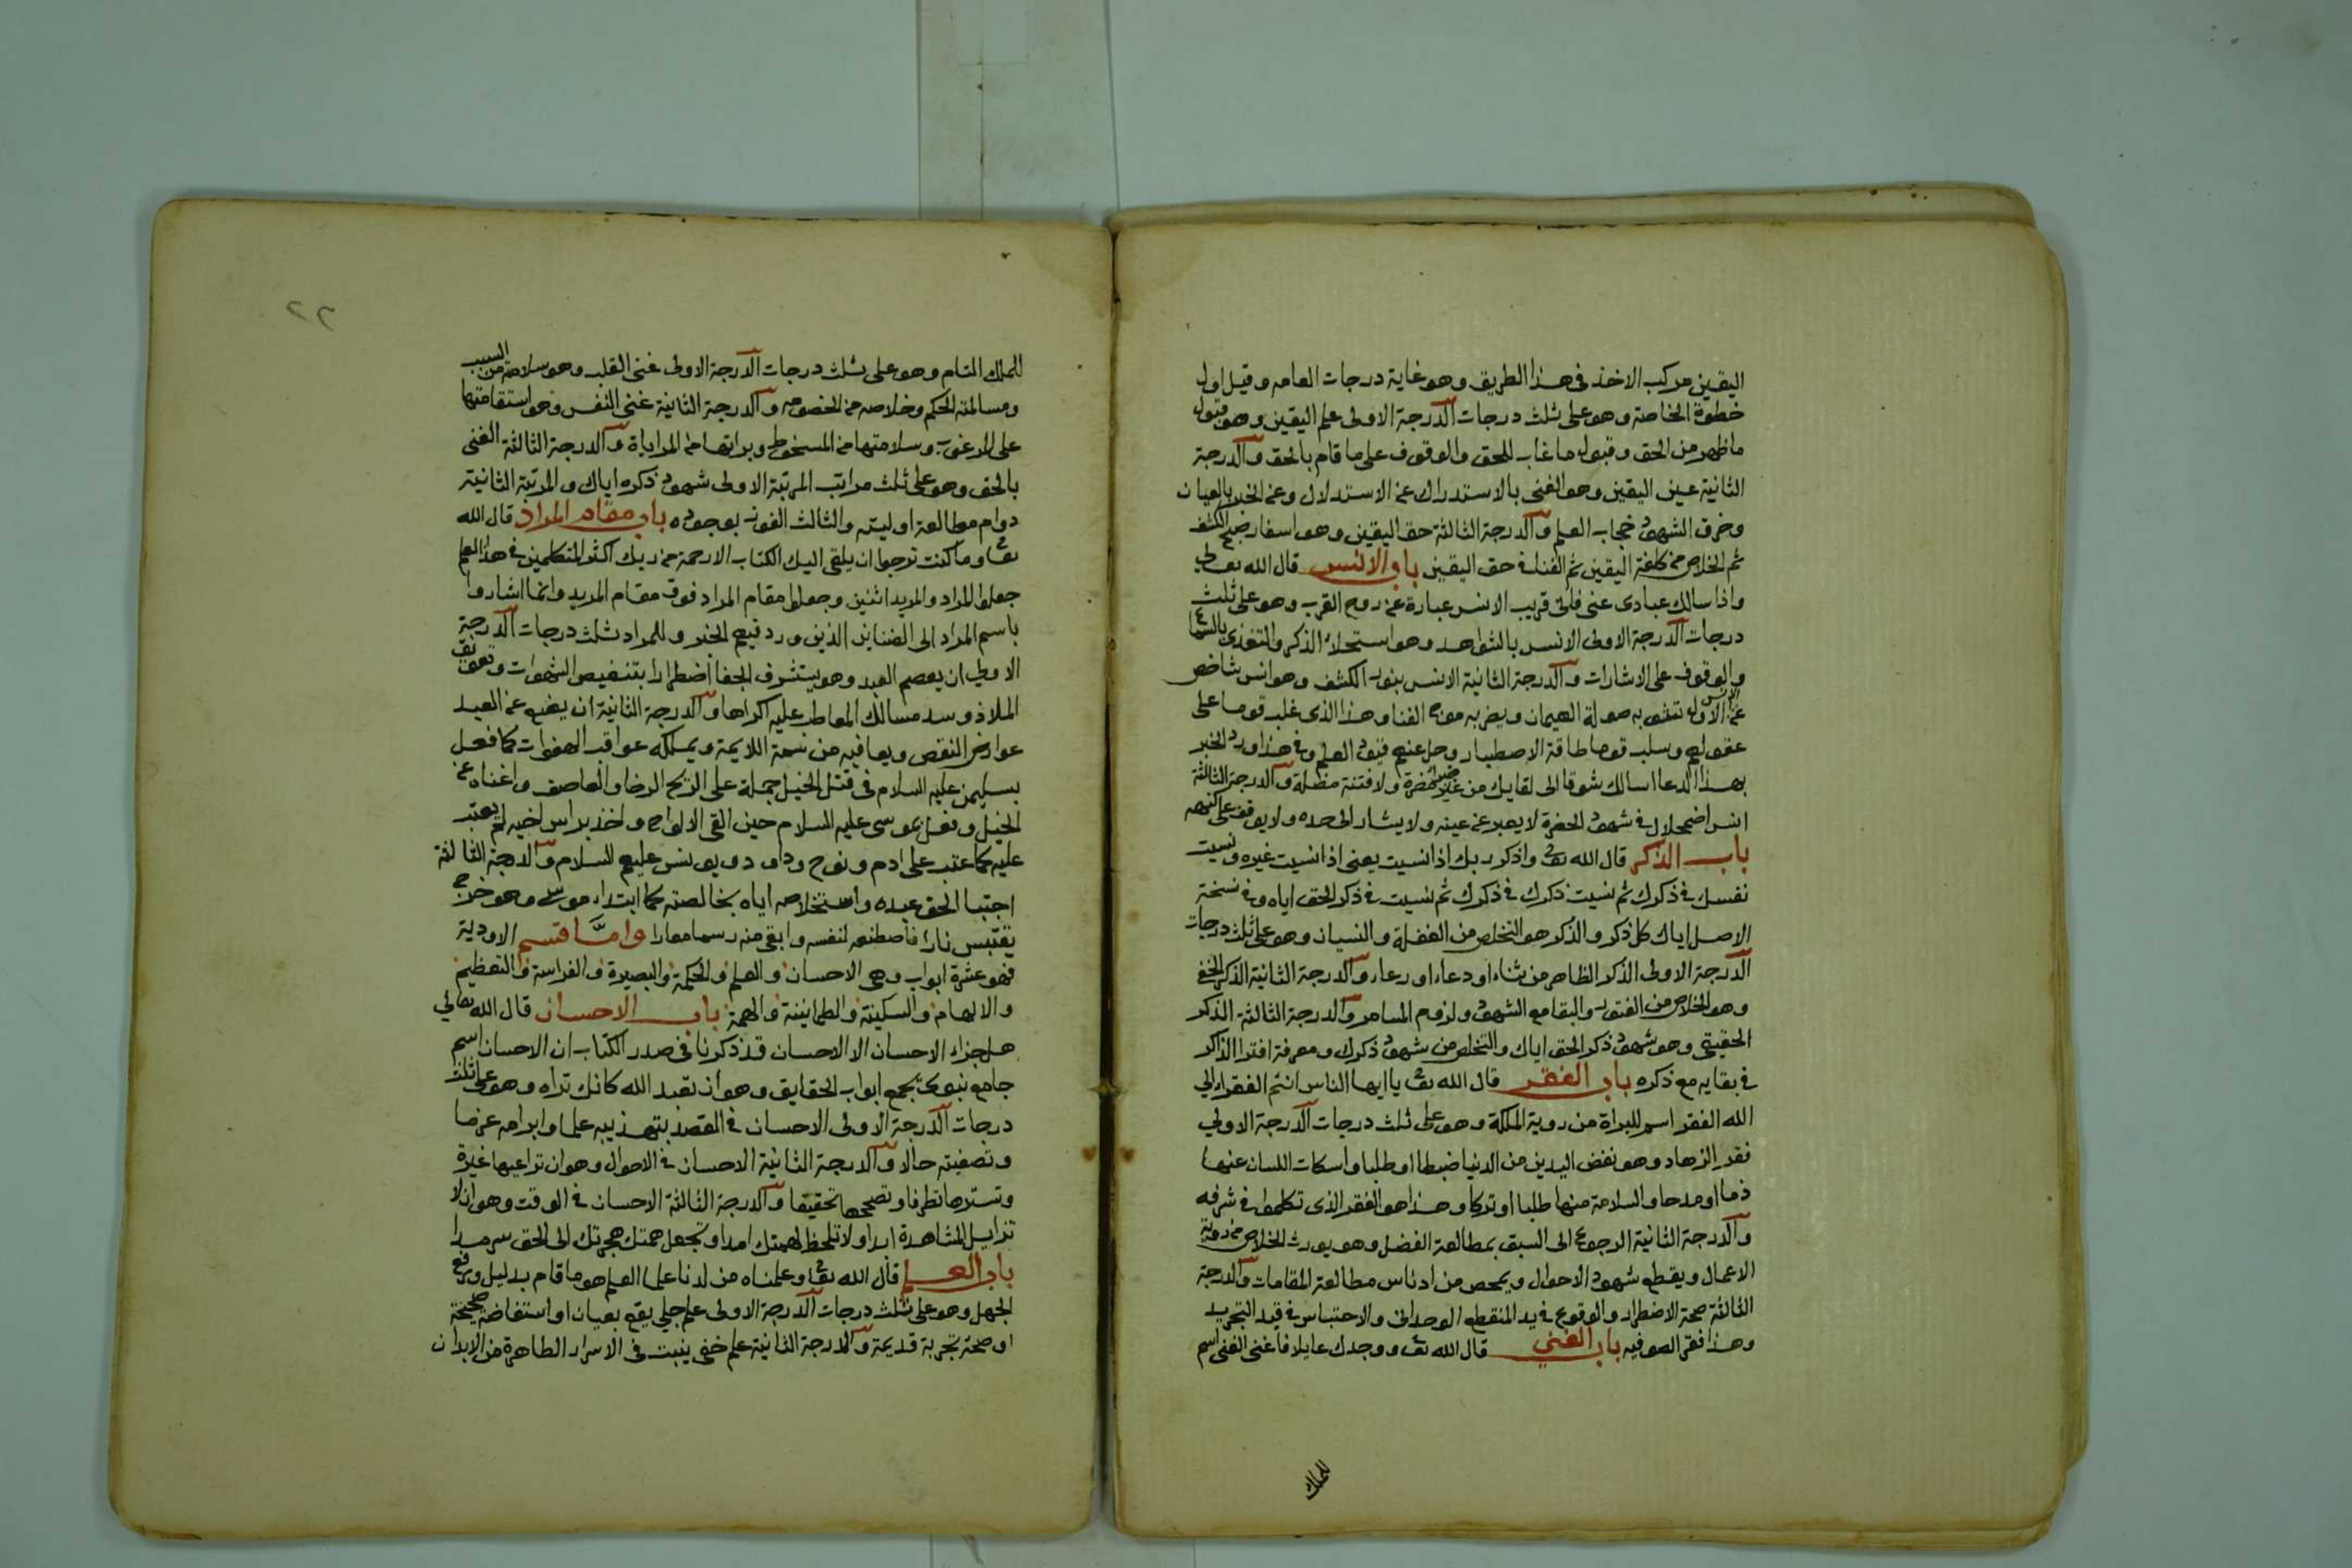 اليقين مركب الاخذ فى هذا الطريق وهو غاية درجات العامه وقيل اول
خطوة الخاصة وهو على ثلث درجات الدرجة الاولى علم اليقين وهو قبول
ما ظهر من الحق وقبول ما غاب للحق والوقوف على ما قام بالحق والدرجة
الثانية عين اليقين وهو الغنى بالاستدراك عن الاستدلال وعن الخبر بالعيان
وخرق الشهود حجاب العلم والدرجة الثالثة حق اليقين وهو اسفار صبح الكشف
ثم الخلاص من كلفة اليقين ثم الفنا فى حق اليقين باب الانس قال الله تعالى
واذا سالك عبادى عنى فانى قريب الانس عبارة عن روح القرب وهو على ثلث
درجات الدرجة الاولى الانس بالشواهد وهو استحلاء الذكر والتغذى بالسماع
والوقوف على الاشارات والدرجة الثانية الانس بنور الكشف وهو انس شاخص
عن الانس الاول تشوبه صولة الهيمان ويضربه موج الفنا وهذا الذى غلب قوما على
عقولهم وسلب قوما طاقة الاصطبار وحل عنهم قيود العلم وفى هذا ورد الخبر
بهذا الدعا اسالك شوقا الى لقايك من غير ضراء مضرة ولا فتنة مضلة والدرجة الثالثة
انس اضمحلال فى شهود الحضرة لا يعبر عن عينه ولا يشار الى حده ولا يوقف على كنهه
باب الذكر قال الله تع واذكر ربك اذا نسيت يعنى اذا نسيت غيره ونسيت
نفسك فى ذكرك ثم نسيت ذكرك فى ذكرك ثم نسيت فى ذكر الحق اياه وفى نسخة
الاصل اياك كل ذكر والذكر هو التخلص من الغفلة والنسيان وهو على ثلث درجات
الدرجة الاولى الذكر الظاهر من ثناء او دعاء او رعاء والدرجة الثانية الذكر الخفى
وهو الخلاص من الفتور والبقا مع الشهود ولزوم المسامر والدرجة الثالثة الذكر
الحقيقى وهو شهود ذكر الحق اياك والتخلص من شهود ذكرك ومعرفة افترا الذاكر
فى بقايه مع ذكره باب الفقر قال الله تع يا ايها الناس انتم الفقراء الى
الله الفقر اسم للبراة من روية الملكة وهو على ثلث درجات الدرجة الاولى
فقر الزهاد وهو نفض اليدين من الدنيا ضبطا او طلبا واسكات اللسان عنها
ذما او مدحا والسلامة منها طلبا او تركا وهذا هو الفقر الذى تكلموا فى شرفه
والدرجة الثانية الرجوع الى السبق بمطالعة الفضل وهو يورث الخلاص من روية
الاعمال ويقطع شهود الاحوال ويمحص من ادناس مطالعة المقامات والدرجة
الثالثة صحة الاضطرار والوقوع فى يد المنقطع الوحدانى والاحتباس فى قيد التجريد
وهذا فقر الصوفيه باب الغنى قال الله تع ووجدك عايلا فاغنى الغنى اسم
للملك
٢٢
للملك التام وهو على ثلث درجات الدرجة الاولى غنى القلب وهو سلامته من السبب
ومسالمته الحكم وخلاصه من الخصومه والدرجة الثانية غنى النفس وهو استقامتها
على المرغوب وسلامتها من المسخوط وبراتها من المراياة والدرجة الثالثة الغنى
بالحق وهو على ثلث مراتب المرتبة الاولى شهود ذكره اياك والمرتبة الثانية
دوام مطالعة اوليته والثالث الفوز بوجوده باب مقام المراد قال الله
تعا وما كنت ترجوا ان يلقى اليك الكتاب الا رحمة من ربك اكثر المتكلمين فى هذا العلم
جعلوا المراد والمريد اثنين وجعلوا مقام المراد فوق مقام المريد وانما اشاروا
باسم المراد الى الضناين الذين ورد فيهم الخبر وللمراد ثلث درجات الدرجة
الاولى ان يعصم العبد وهو يستشرف للجفا اضطرارا بتنغيص الشهوات وتعويق
الملاذ وسد مسالك المعاطب عليه اكراها والدرجة الثانية ان يضع عن العبد
عوارض النقص ويعافيه من سمة اللايمة ويملكه عواقب الهفوات كما فعل
بسليمن عليه السلام فى قتل الخيل حمله على الريح الرخا والعاصف واغناه عن
الخيل وفعل بموسى عليه السلام حين القى الالواح واخذ براس اخيه لم يعتب
عليه كما عتب على ادم ونوح وداود ويونس عليهم السلام والدرجة الثالثة
اجتبا الحق عبده واستخلاصه اياه بخالصته كما ابتدا موسى وهو خرج
يقتبس نارا فاصطنعه لنفسه وابقى منه رسما معارا واما قسم الاودية
فهو عشرة ابواب وهى الاحسان والعلم والحكمة والبصيرة والفراسة والتعظيم
والالهام والسكينة والطمانينة والهمة باب الاحسان قال الله تعالى
هل جزاء الاحسان الا الاحسان قد ذكرنا فى صدر الكتاب ان الاحسان اسم
جامع نبوى يجمع ابواب الحقايق وهو ان تعبد الله كانك تراه وهو على ثلث
درجات الدرجة الاولى الاحسان فى القصد بتهذيبه علما وابرامه عزما
وتصفيته حالا والدرجة الثانية الاحسان فى الاحوال وهو ان تراعيها غيرة
وتسترها تظرفا وتصححها تحقيقا والدرجة الثالثة الاحسان فى الوقت وهو ان لا
تزايل المشاهدة ابدا ولا تلحظ لهمتك امدا وتجعل همتك هجرتك الى الحق سرمدا
باب العلم قال الله تعا وعلمناه من لدنا علما العلم هو ما قام بدليل ورفع
الجهل وهو على ثلث درجات الدرجة الاولى علم جلى يقع بعيان او استفاضة صحيحة
او صحة تجربة قديمة والدرجة الثانية علم خفى ينبت فى الاسرار الطاهرة من الابدان